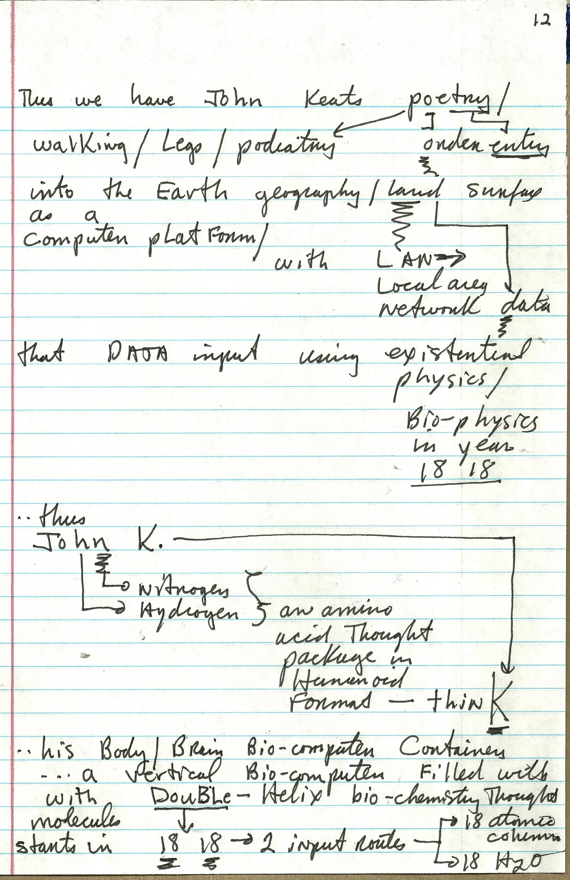 12
Thus we have John Keats poetry/
walking/Legs/podiatry onder entry
into the Earth geography/land surface
as a
computer platform/
with LAN
Local area
network data
that DATA input using existential
physics/
Bio-physics
in year
18 18
..thus
John K.
Nitrogen
Hydrogen
an amino
acid Thought
package in
Humanoid
Format — thinK
..his Body/Brain Bio-computer Container
....a vertical Bio-computer Filled with
with DouBLe-Helix bio-chemistry Thought
molecules
starts in 18 18 → 2 input routes
18 atomic
column
18 H2O